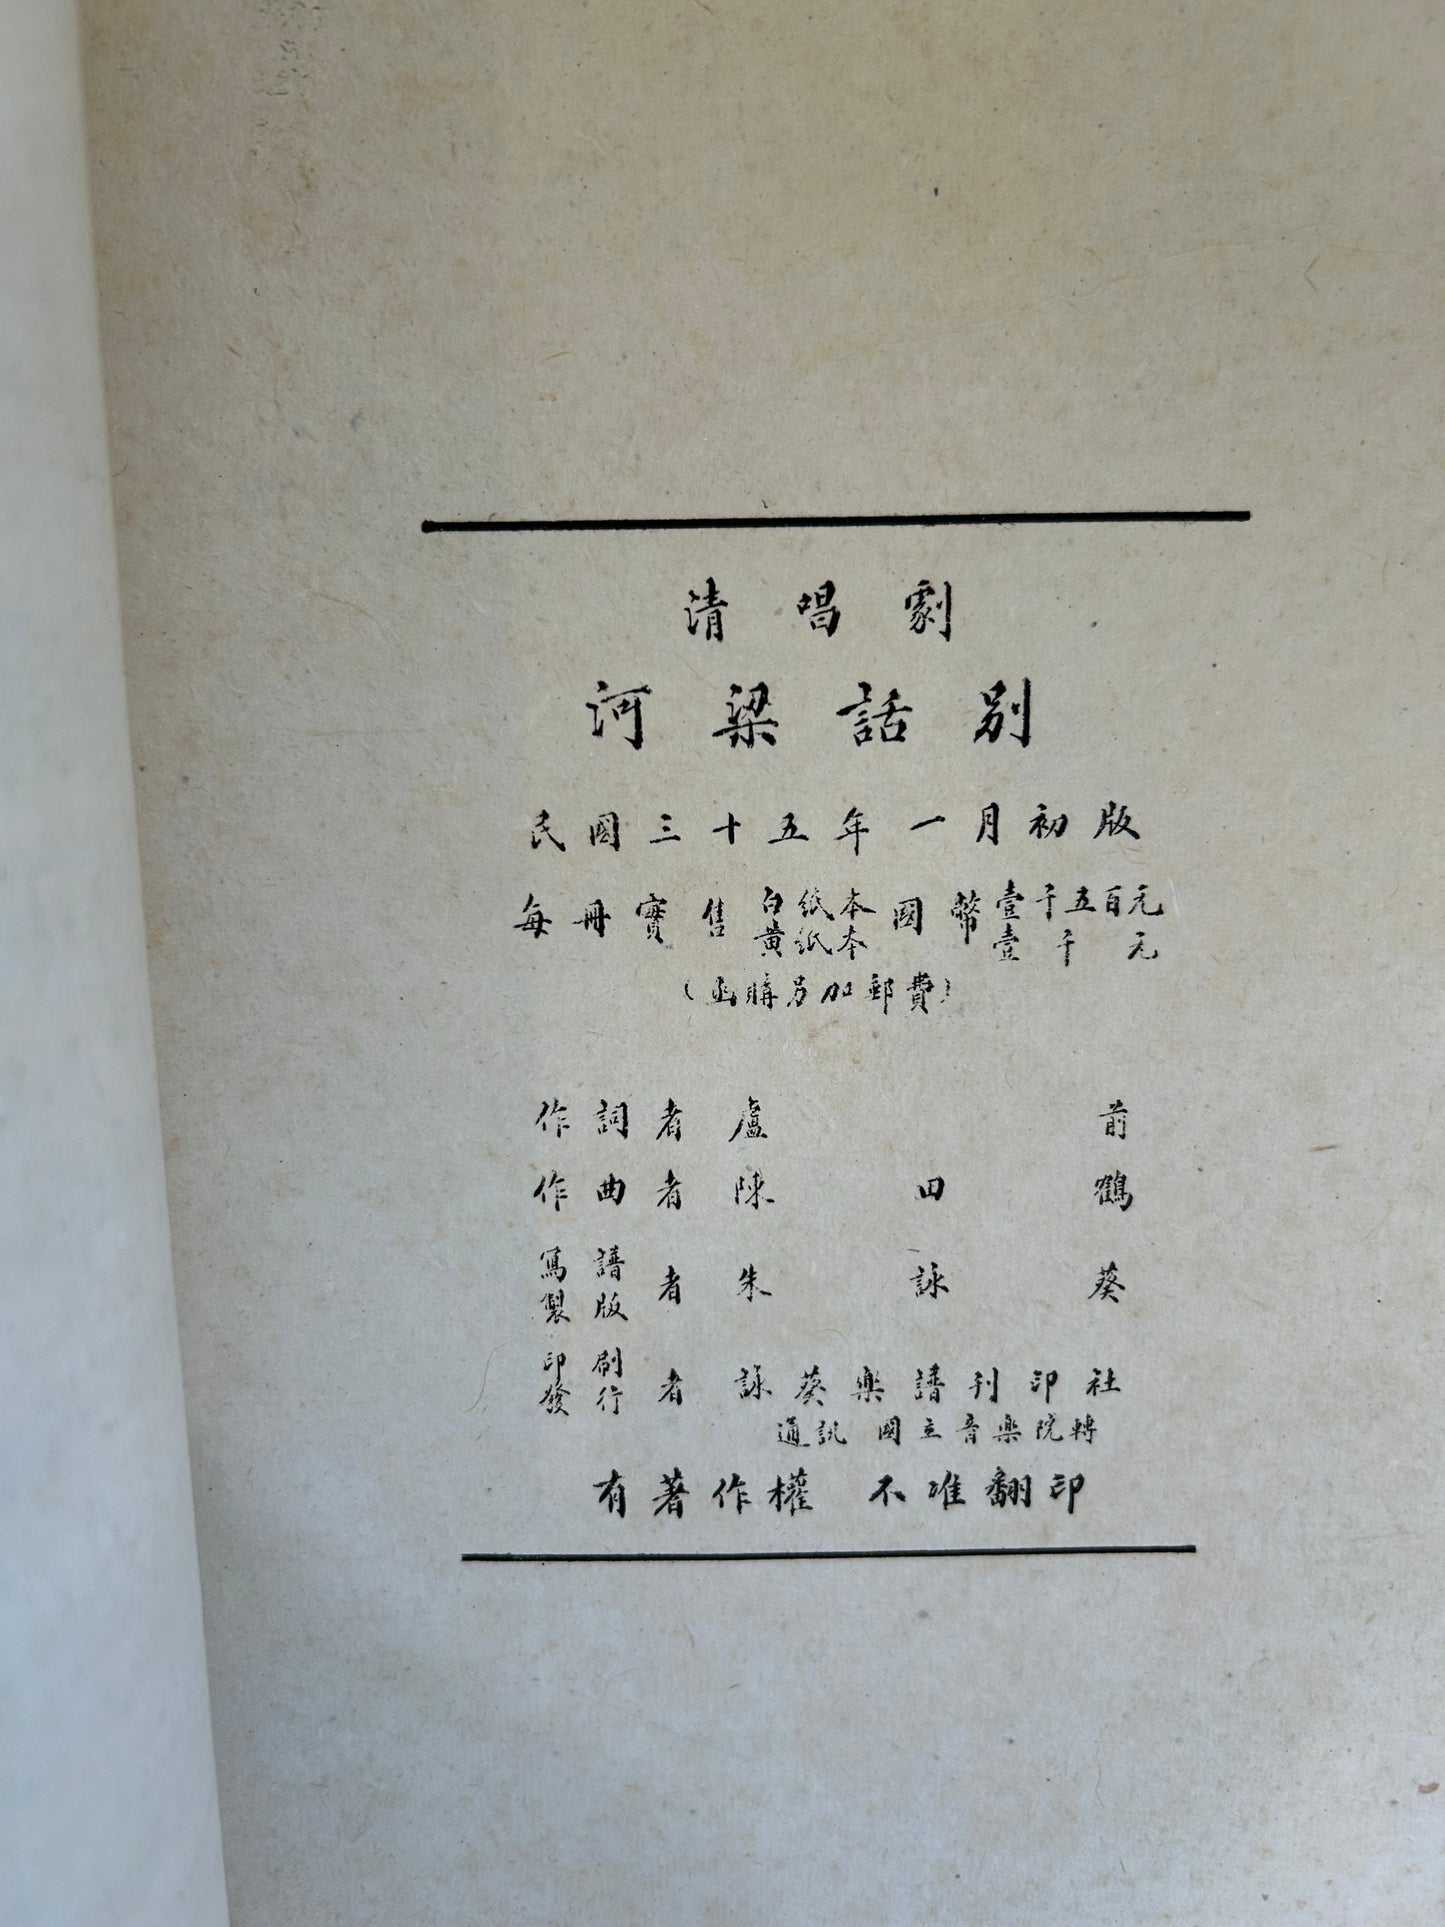 清唱劇
河梁話別
民國三十五年一月初版
每冊實售 白紙本 國幣 壹千五百元
黃紙本 壹千元
(函購另加郵費)
作詞者 盧前
作曲者 陳田鶴
寫譜製版者 朱詠葵
印刷發行者 詠葵樂譜刊印社
通訊 國立音樂院轉
有著作權 不准翻印